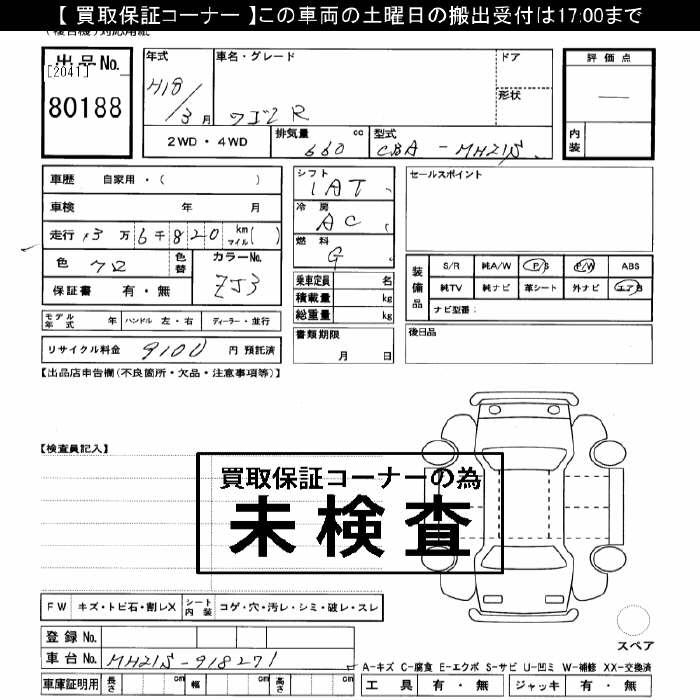 【 買取保証コーナー 】この車両の土曜日の搬出受付は17:00まで
出品No.
[2041]
80188
年式
H18/3月
車名・グレード
ワゴンR
ドア
形状
評価点
—
内装
2WD・4WD
排気量 660 cc
型式 CBA-MH21S
車歴 自家用・( )
車検 年 月
走行 3万6千820 km マイル( )
色 クロ
色替
カラーNo. ZJ3
保証書 有・無
シフト
IAT
冷房
AC
燃料
G
乗車定員 名
積載量 kg
総重量 kg
セールスポイント
装備品
S/R 純A/W P/S P/W ABS
純TV 純ナビ 革シート 外ナビ エアB
ナビ型番:
モデル年式 年 ハンドル 左・右 ディーラー・並行
リサイクル料金 9100 円 預託済
書類期限
月 日
後日品
【出品店申告欄(不良箇所・欠品・注意事項等)】
【検査員記入】
買取保証コーナーの為
未検査
FW キズ・トビ石・割レX シート内装 コゲ・穴・汚レ・シミ・破レ・スレ
登録No.
車台No. MH21S-918271
車庫証明用 長さ cm 幅 cm 高さ cm
スペア
A-キズ C-腐食 E-エクボ S-サビ U-凹ミ W-補修 XX-交換済
工具 有・無 ジャッキ 有・無